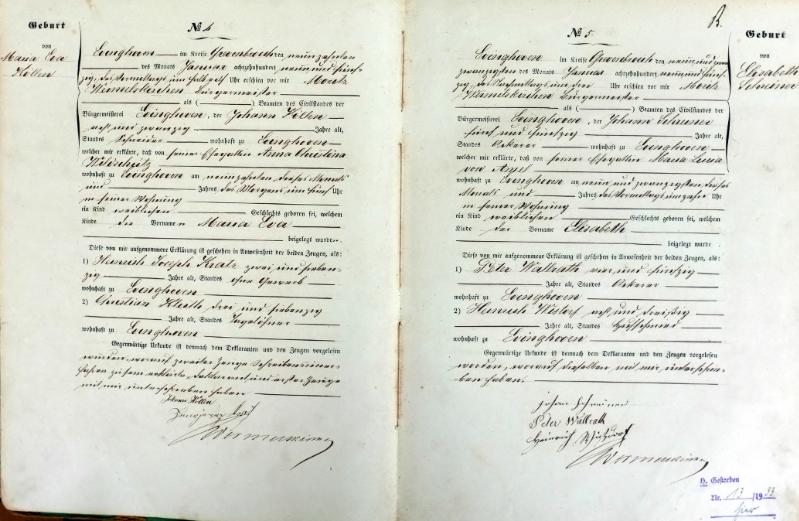 Geburt
von
Maria Eva
Köllen
№ 4
Evinghoven im Kreise Grevenbroich den neunzehnten
des Monats Januar achtzehnhundert neun und fünf-
zig, des Vormittags um halb elf Uhr erschien vor mir Moritz
Bürgermeister
als ( ) Beamten des Civilstandes der
Bürgermeisterei Evinghoven, der Johann Köllen
acht und zwanzig Jahre alt,
Standes wohnhaft zu Evinghoven
welcher mir erklärte, daß von seiner Ehegattin Anna Christina
wohnhaft zu Evinghoven am neunzehnten dieses Monats
und Jahres des Morgens um fünf Uhr
in seiner Wohnung
ein Kind weiblichen Geschlechts geboren sei, welchem
Kinde die Vornamen Maria Eva
beigelegt wurden.
Diese von mir aufgenommene Erklärung ist geschehen in Anwesenheit der beiden Zeugen, als:
1) Heinrich Joseph Kratz zwei und sieben-
zig Jahre alt, Standes ohne Gewerb
wohnhaft zu Evinghoven
2) Christian drei und siebenzig
Jahre alt, Standes Tagelöhner
wohnhaft zu Evinghoven
Gegenwärtige Urkunde ist demnach dem Deklaranten und den Zeugen vorgelesen
worden, worauf zweiter Zeuge Schreibens uner-
fahren zu sein erklärte, Deklarant und erster Zeuge
mit mir unterschrieben haben
Johann Köllen
№ 5.
B.
Geburt
von
Elisabeth
Schreiner
Evinghoven im Kreise Grevenbroich den neun und
zwanzigsten des Monats Januar achtzehnhundert neun und fünf-
zig, des Nachmittags um drei Uhr erschien vor mir Moritz
Bürgermeister
als ( ) Beamten des Civilstandes der
Bürgermeisterei Evinghoven, der Johann Schreiner
fünf und fünfzig Jahre alt,
Standes Ackerer wohnhaft zu Evinghoven
welcher mir erklärte, daß von seiner Ehegattin Maria
von
wohnhaft zu Evinghoven am neun und zwanzigsten dieses
Monats und Jahres des Vormittags um zehn Uhr
in seiner Wohnung
ein Kind weiblichen Geschlechts geboren sei, welchem
Kinde der Vorname Elisabeth
beigelegt wurde
Diese von mir aufgenommene Erklärung ist geschehen in Anwesenheit der beiden Zeugen, als:
1) Peter Wallrath vier und fünfzig
Jahre alt, Standes Ackerer
wohnhaft zu Evinghoven
2) Heinrich acht und dreißig
Jahre alt, Standes Hufschmied
wohnhaft zu Evinghoven
Gegenwärtige Urkunde ist demnach dem Deklaranten und den Zeugen vorgelesen
worden, worauf dieselben mit mir unterschrie-
ben haben.
Johan Schreiner
Peter Wallrath
Heinrich
H. Gestorben
Nr. 13 /19
hier